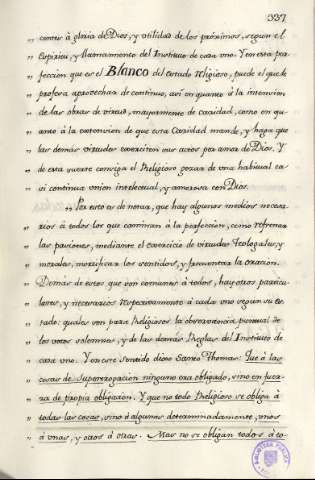 337
contes à gloria de Dios, y utilidad de los próximos, segun el
„ espiritu, y llamamiento del Instituto de cada uno. Y en esta per
„ feccion que es el Blanco del estado religioso, puede el que le
„ profesa aprovechar de continuo, asi en quanto à la intension
„ de las obras de virtud, mayormente de caridad, como en qu-
„ anto à la extension de que esta Caridad mande, y haga que
„ las demàs virtudes exerciten sus actos por amor de Dios. Y
„ de esta suerte consiga el Religioso gozar de una habitual ca
„ si continua union intelectual, y amorosa con Dios.
„ Por esto es de notar, que hay algunos medios necesa-
„ rios à todos los que caminan à la perfeccion, como refrenar
„ las pasiones, mediante el exercicio de virtudes Teologales, y
„ morales, mortificar los sentidos, y frecuentar la oracion.
„ Demàs de estos que son comunes à todos, hay otros particu
„ lares, y necesarios respectivamente à cada uno segun su es-
„ tado, quales son para Religiosos la observancia puntual de
„ los votos solemnes, y de las demàs Reglas del Instituto de
„ cada uno. Y en este sentido dixo Santo Thomas: Que à las
„ cosas de Supererogacion ninguno era obligado, sino en fuer-
„ za de propia obligacion. Y que no todo Religioso se obliga à
„ todas las cosas, sino à algunas determinadamente, unos
„ à unas, y otros à otras. Mas no se obligan todos à to-